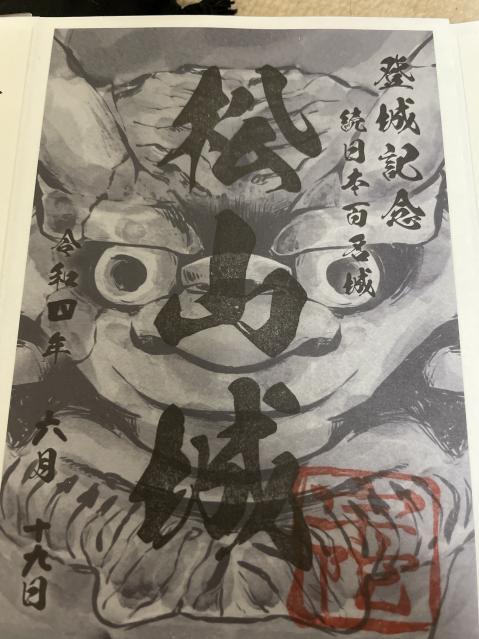 登城記念
続日本百名城
松山城
令和四年 六月 十九日